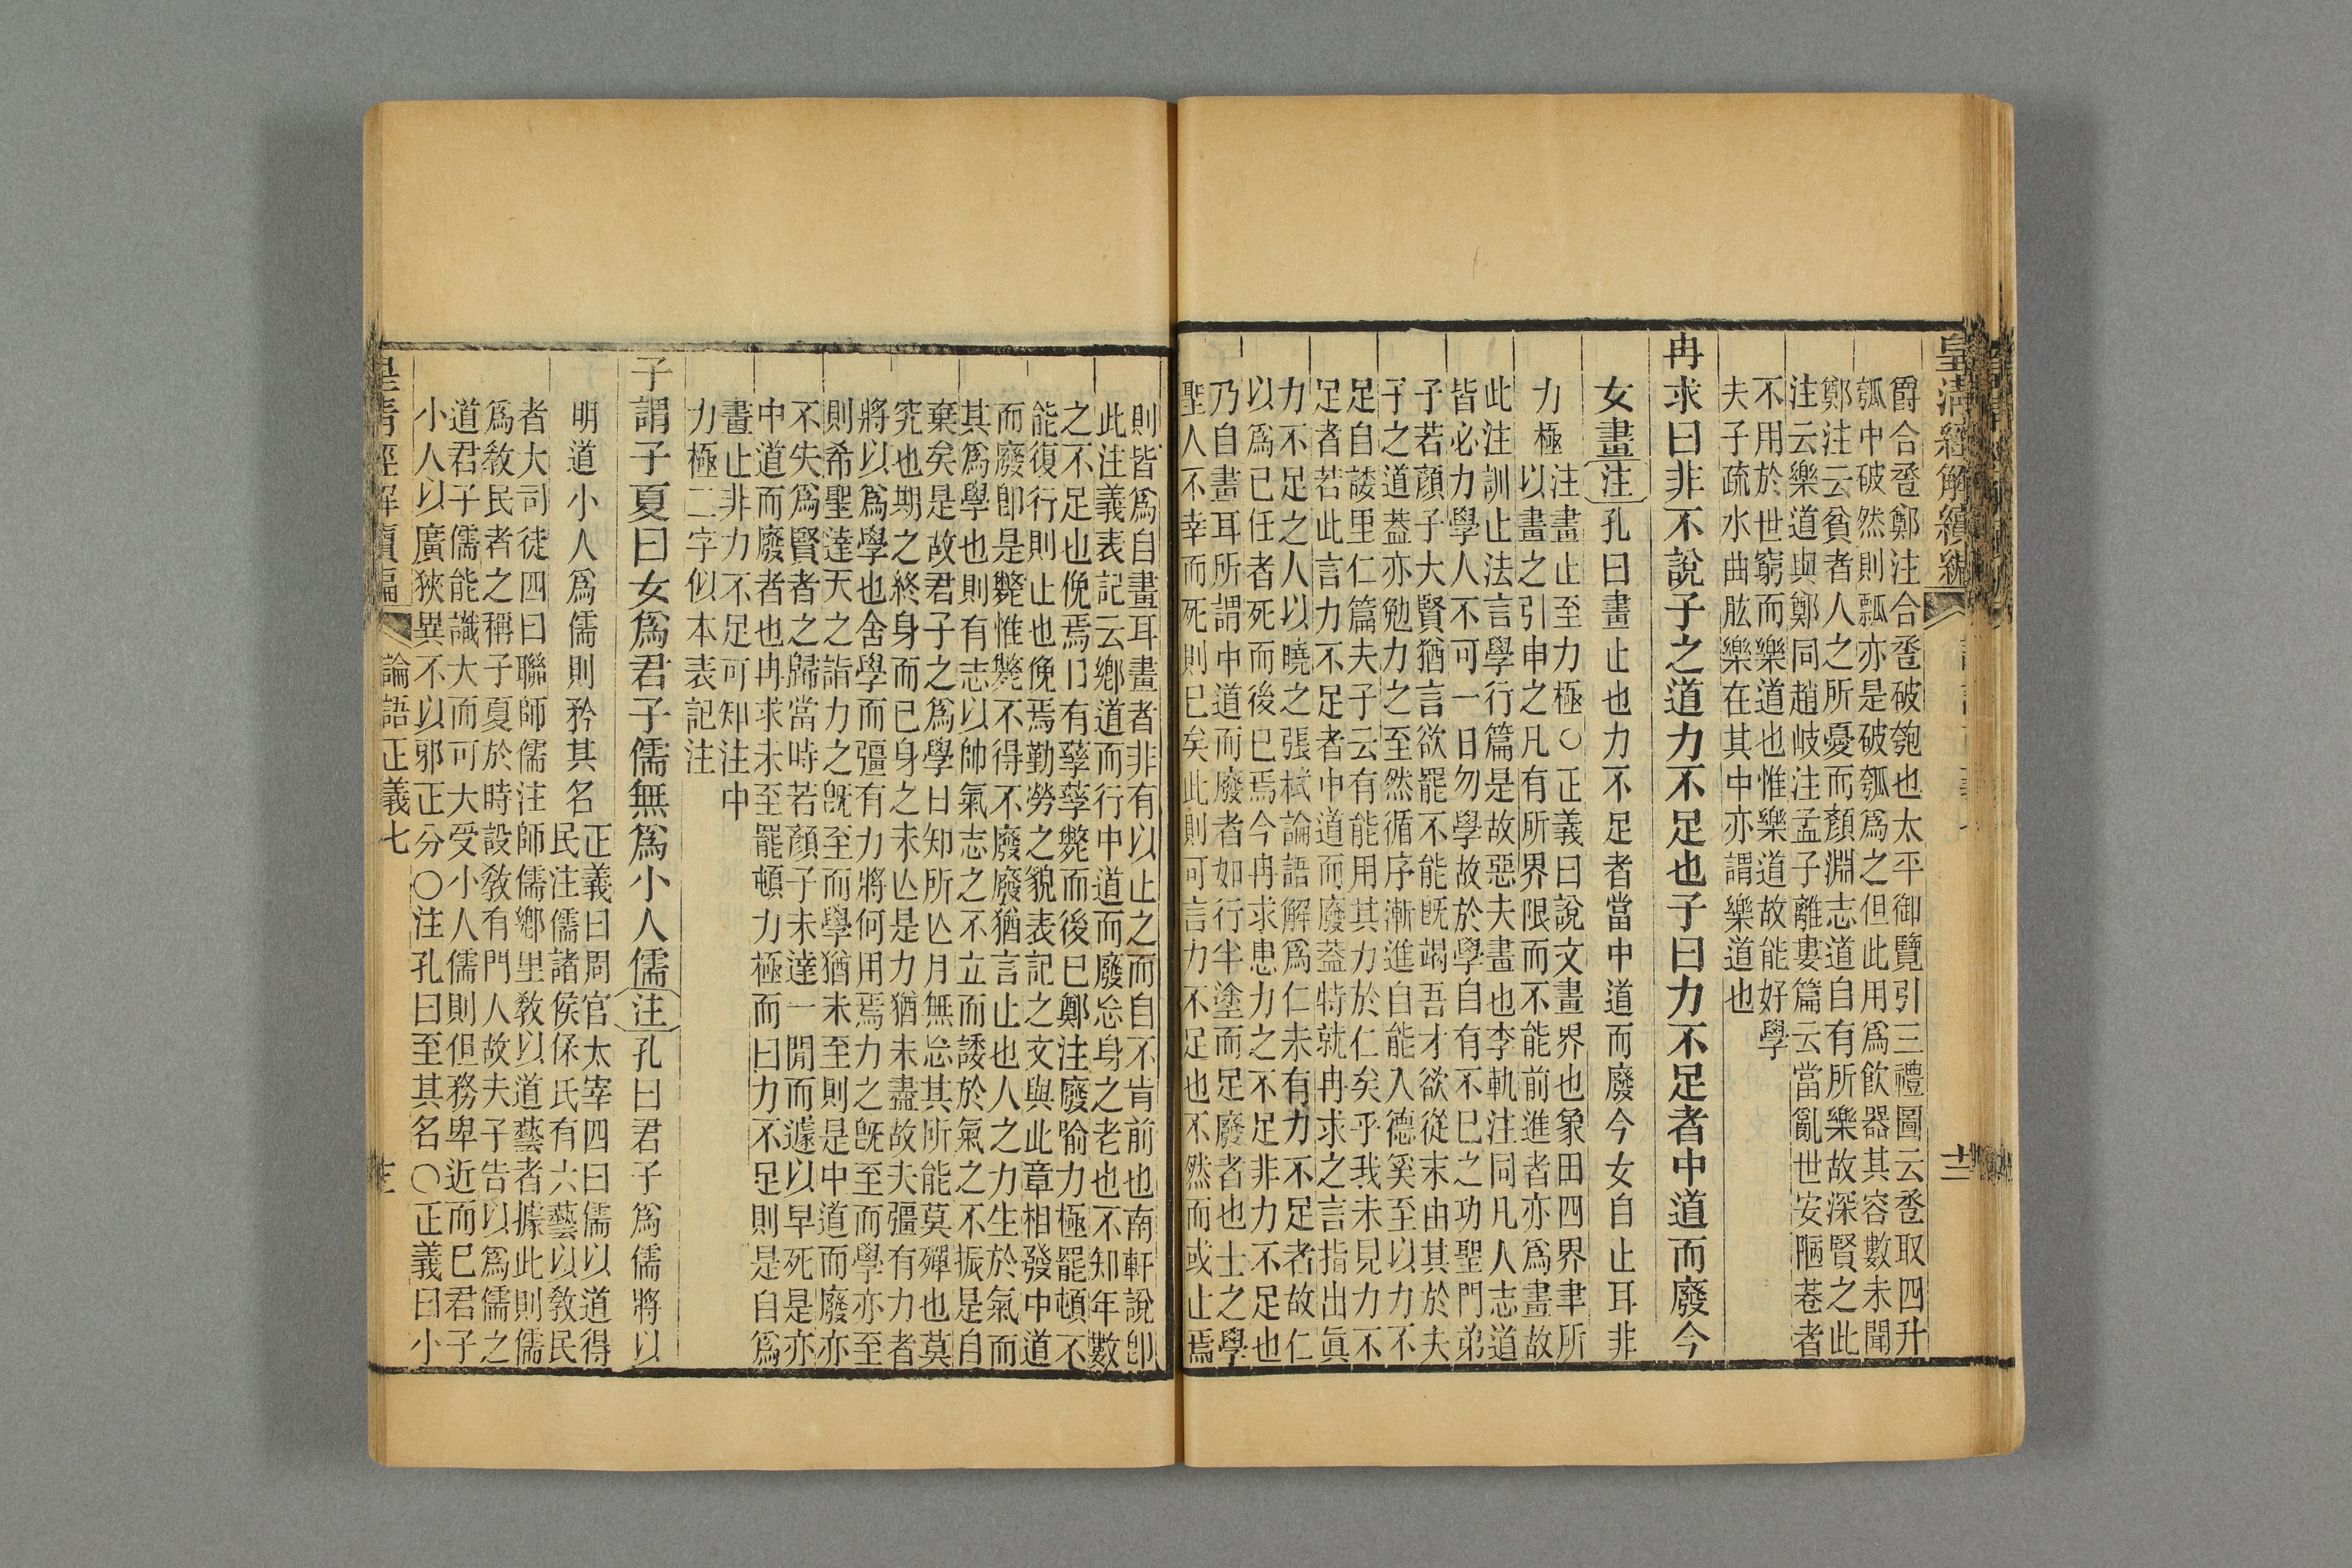 皇淸經解續編
十二
爵合巹鄭注合巹破匏也太平御覽引三禮圖云巹取四升
瓠中破然則瓢亦是破瓠爲之但此用爲飮器其容數未聞
鄭注云貧者人之所憂而顏淵志道自有所樂故深賢之此
注云樂道與鄭同趙岐注孟子離婁篇云當亂世安陋巷者
不用於世窮而樂道也惟樂道故能好學
夫子疏水曲肱樂在其中亦謂樂道也
冉求曰非不說子之道力不足也子曰力不足者中道而廢今
女畫注孔曰畫止也力不足者當中道而廢今女自止耳非
力極
注畫止至力極○正義曰說文畫界也象田四界聿所
以畫之引申之凡有所界限而不能前進者亦爲畫故
此注訓止法言學行篇是故惡夫畫也李軌注同凡人志道
皆必力學人不可一日勿學故於學自有不已之功聖門弟
子若顏子大賢猶言欲罷不能旣竭吾才欲從末由其於夫
子之道蓋亦勉力之至然循序漸進自能入德奚至以力不
足自諉里仁篇夫子云有能用其力於仁矣乎我未見力不
足者若此言力不足者中道而廢蓋特就冉求之言指出眞
力不足之人以曉之張栻論語解爲仁未有力不足者故仁
以爲已任者死而後已焉今冉求患力之不足非力不足也
乃自畫耳所謂中道而廢者如行半塗而足廢者也士之學
聖人不幸而死則已矣此則可言力不足也不然而或止焉
則皆爲自畫耳畫者非有以止之而自不肯前也南軒說卽
此注義表記云鄕道而行中道而廢忘身之老也不知年數
之不足也俛焉日有孳孳斃而後已鄭注廢喻力極罷頓不
能復行則止也俛焉勤勞之貌表記之文與此章相發中道
而廢卽是斃惟斃不得不廢廢猶言止也人之力生於氣而
其爲學也則有志以帥氣志之不立而諉於氣之不振是自
棄矣是故君子之爲學日知所亾月無忘其所能莫殫也莫
究也期之終身而已身之未亾是力猶未盡故夫彊有力者
將以爲學也舍學而彊有力將何用焉力之旣至而學亦至
則希聖達天之詣力之旣至而學猶未至則是中道而廢亦
不失爲賢者之歸當時若顏子未達一閒而遽以早死是亦
中道而廢者也冉求未至罷頓力極而曰力不足則是自爲
畫止非力不足可知注中
力極二字似本表記注
子謂子夏曰女爲君子儒無爲小人儒注孔曰君子爲儒將以
明道小人爲儒則矜其名
正義曰周官太宰四曰儒以道得
民注儒諸侯保氏有六藝以敎民
者大司徒四曰聯師儒注師儒鄕里敎以道藝者據此則儒
爲敎民者之稱子夏於時設敎有門人故夫子告以爲儒之
道君子儒能識大而可大受小人儒則但務卑近而已君子
小人以廣狹異不以邪正分○注孔曰至其名○正義曰小
皇淸經解續編
論語正義七